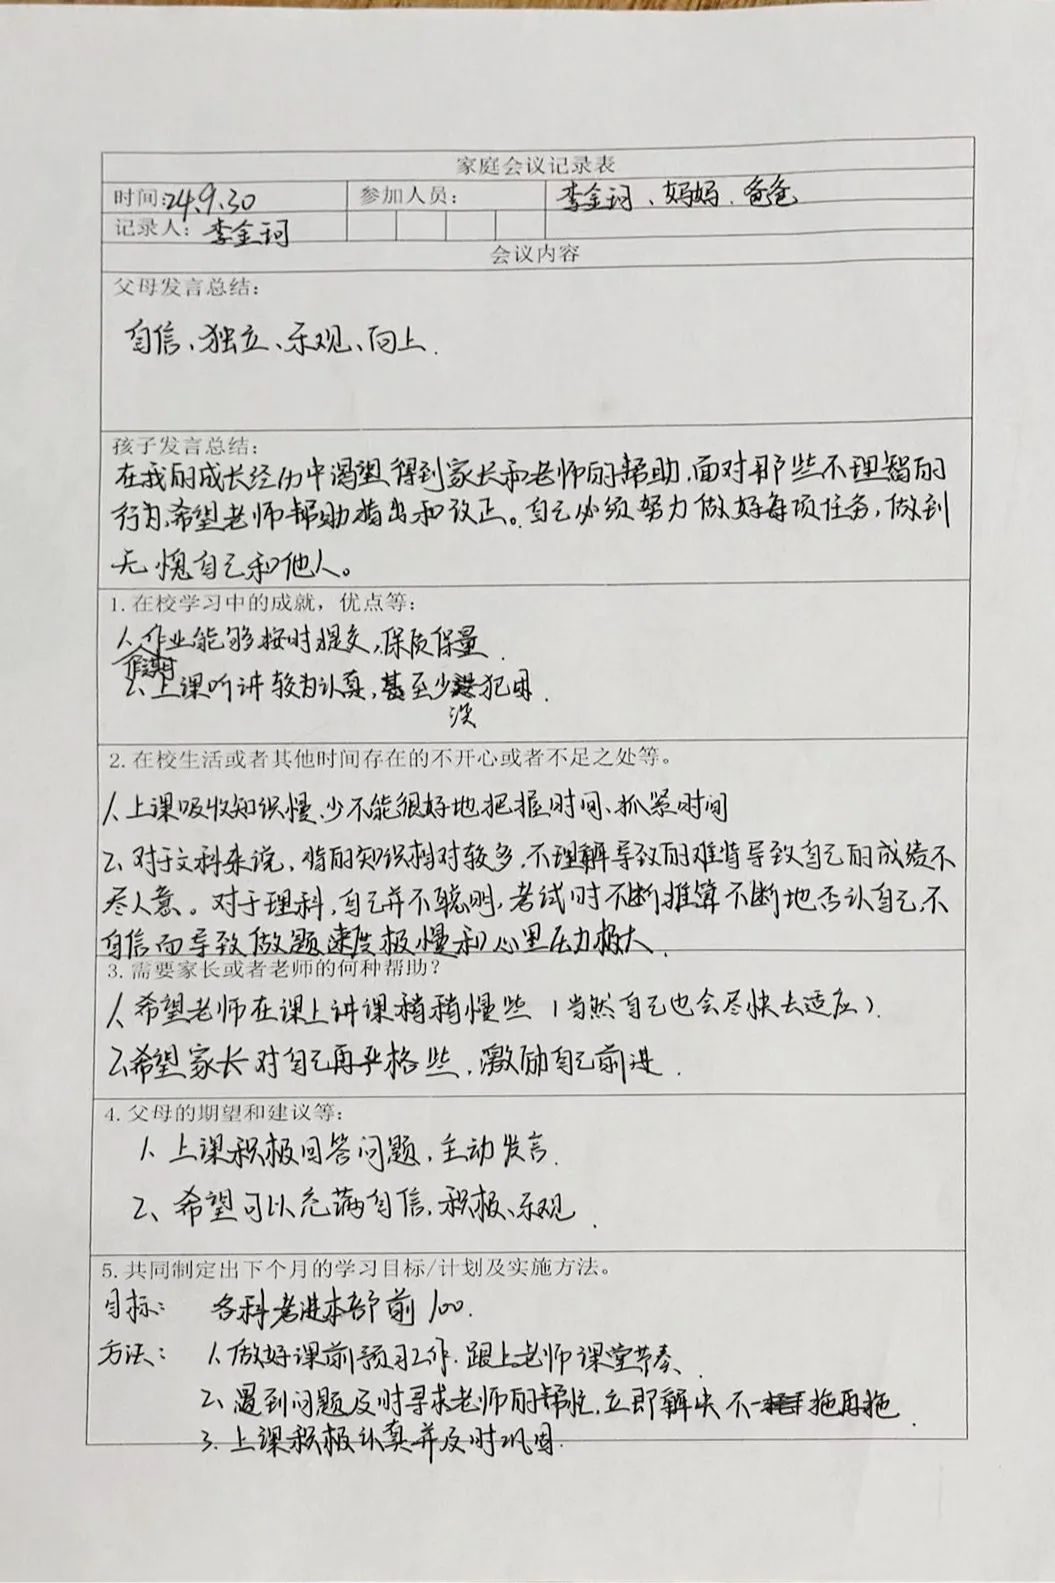 家庭会议记录表
时间:24.9.30 参加人员: 李金珂、妈妈、爸爸
记录人: 李金珂
会议内容
父母发言总结:
自信、独立、乐观、向上.
孩子发言总结:
在我的成长经历中渴望得到家长和老师的帮助,面对那些不理智的
行为,希望老师帮助指出和改正。自己必须努力做好每项任务,做到
无愧自己和他人。
1.在校学习中的成就，优点等:
1.作业能够按时提交,保质保量.
2.上课听讲较为认真,甚至少犯困.
没
2.在校生活或者其他时间存在的不开心或者不足之处等。
1.上课吸收知识慢,不能很好地把握时间、抓紧时间
2.对于文科来说,背的知识相对较多,不理解导致的难背导致自己的成绩不
尽人意。对于理科,自己并不聪明,考试时不断推算不断地否认自己,不
自信而导致做题速度极慢和心里压力极大.
3.需要家长或者老师的何种帮助?
1.希望老师在课上讲课稍稍慢些(当然自己也会尽快去适应).
2.希望家长对自己再严格些,激励自己前进.
4.父母的期望和建议等:
1.上课积极回答问题,主动发言.
2、希望可以充满自信,积极、乐观.
5.共同制定出下个月的学习目标/计划及实施方法。
目标: 各科考进本部前100.
方法: 1.做好课前预习工作.跟上老师课堂节奏.
2、遇到问题及时寻求老师的帮忙,立即解决不一拖再拖.
3.上课积极认真并及时巩固.